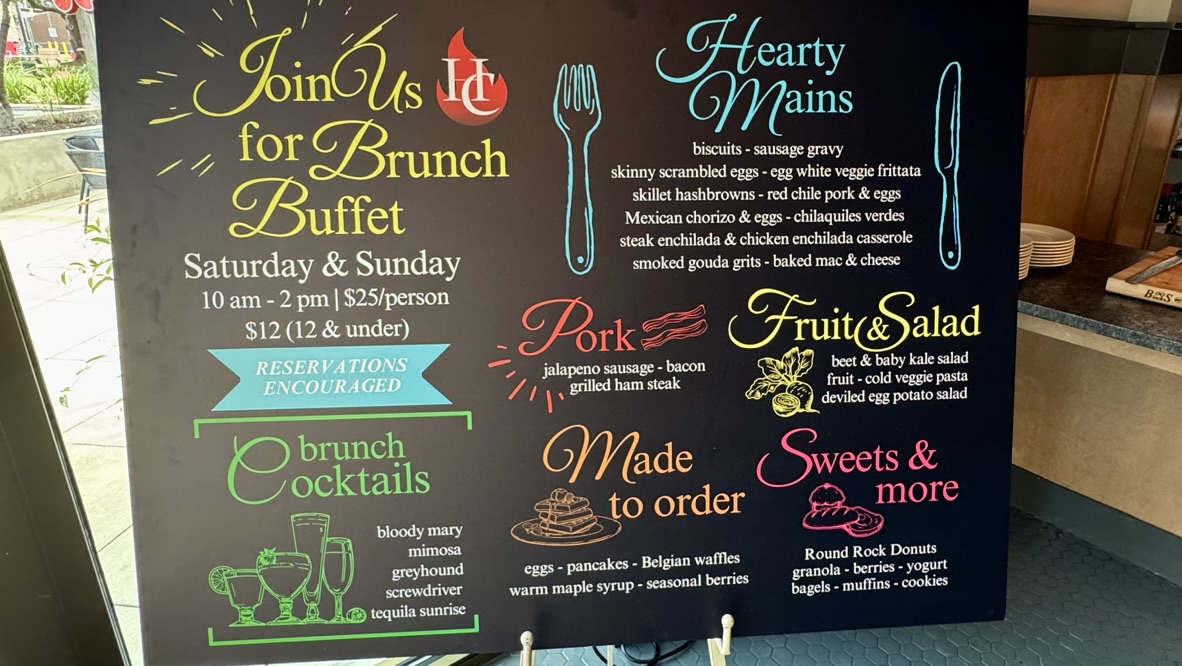 Join Us
HC
for Brunch
Buffet
Saturday & Sunday
10 am - 2 pm | $25/person
$12 (12 & under)
RESERVATIONS
ENCOURAGED
brunch
Cocktails
bloody mary
mimosa
greyhound
screwdriver
tequila sunrise
Hearty
Mains
biscuits - sausage gravy
skinny scrambled eggs - egg white veggie frittata
skillet hashbrowns - red chile pork & eggs
Mexican chorizo & eggs - chilaquiles verdes
steak enchilada & chicken enchilada casserole
smoked gouda grits - baked mac & cheese
Pork
jalapeno sausage - bacon
grilled ham steak
Fruit & Salad
beet & baby kale salad
fruit - cold veggie pasta
deviled egg potato salad
Made
to order
eggs - pancakes - Belgian waffles
warm maple syrup - seasonal berries
Sweets &
more
Round Rock Donuts
granola - berries - yogurt
bagels - muffins - cookies